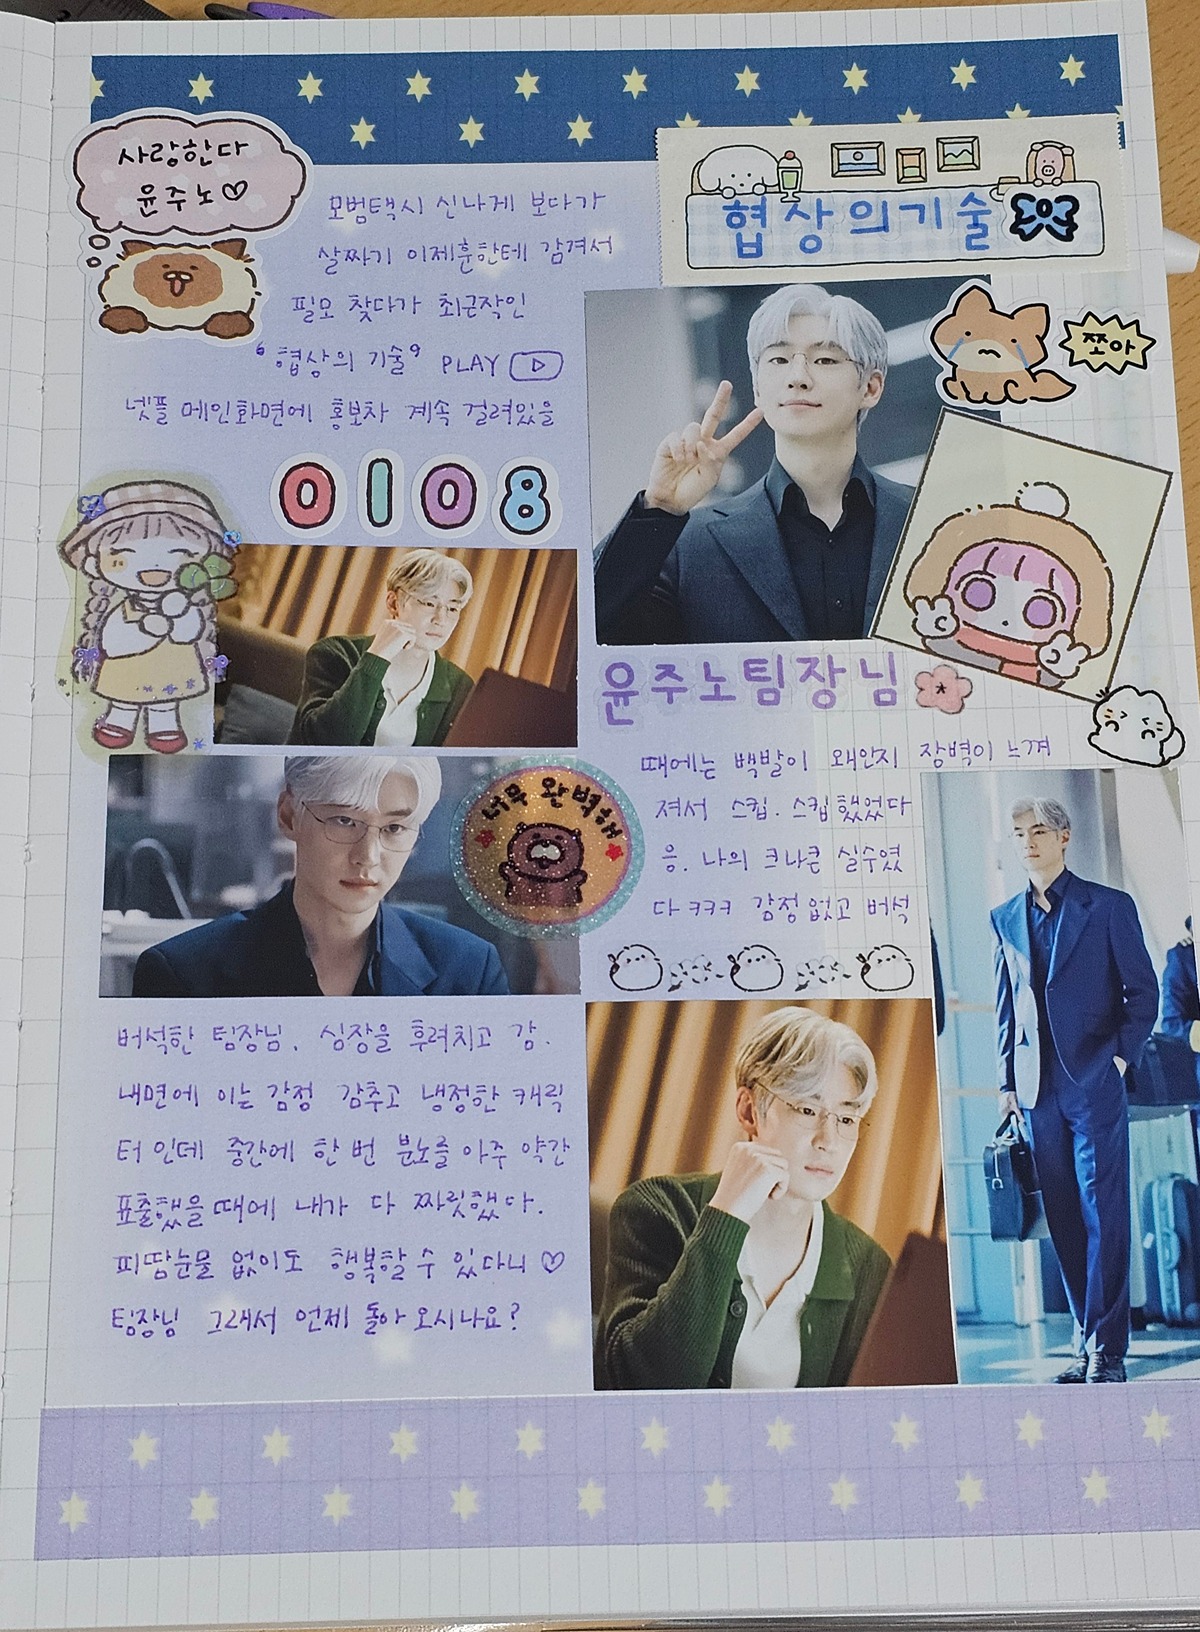 사랑한다
윤주노♡
협상의기술
모범택시 신나게 보다가
살짜기 이제훈한테 감겨서
필모 찾다가 최근작인
'협상의 기술' PLAY
넷플 메인화면에 홍보차 계속 걸려있을
쪼아
0108
윤주노팀장님
때에는 백발이 왜인지 장벽이 느껴
져서 스킵. 스킵했었다
응. 나의 크나큰 실수였
다 ㅋㅋㅋ 감정없고 버석
너무 완벽해
버석한 팀장님. 심장을 후려치고 감.
내면에 이는 감정 감추고 냉정한 캐릭
터 인데 중간에 한 번 분노를 아주 약간
표출했을 때에 내가 다 짜릿했다.
피땀눈물 없이도 행복할 수 있다니 ♡
팀장님 그래서 언제 돌아오시나요?